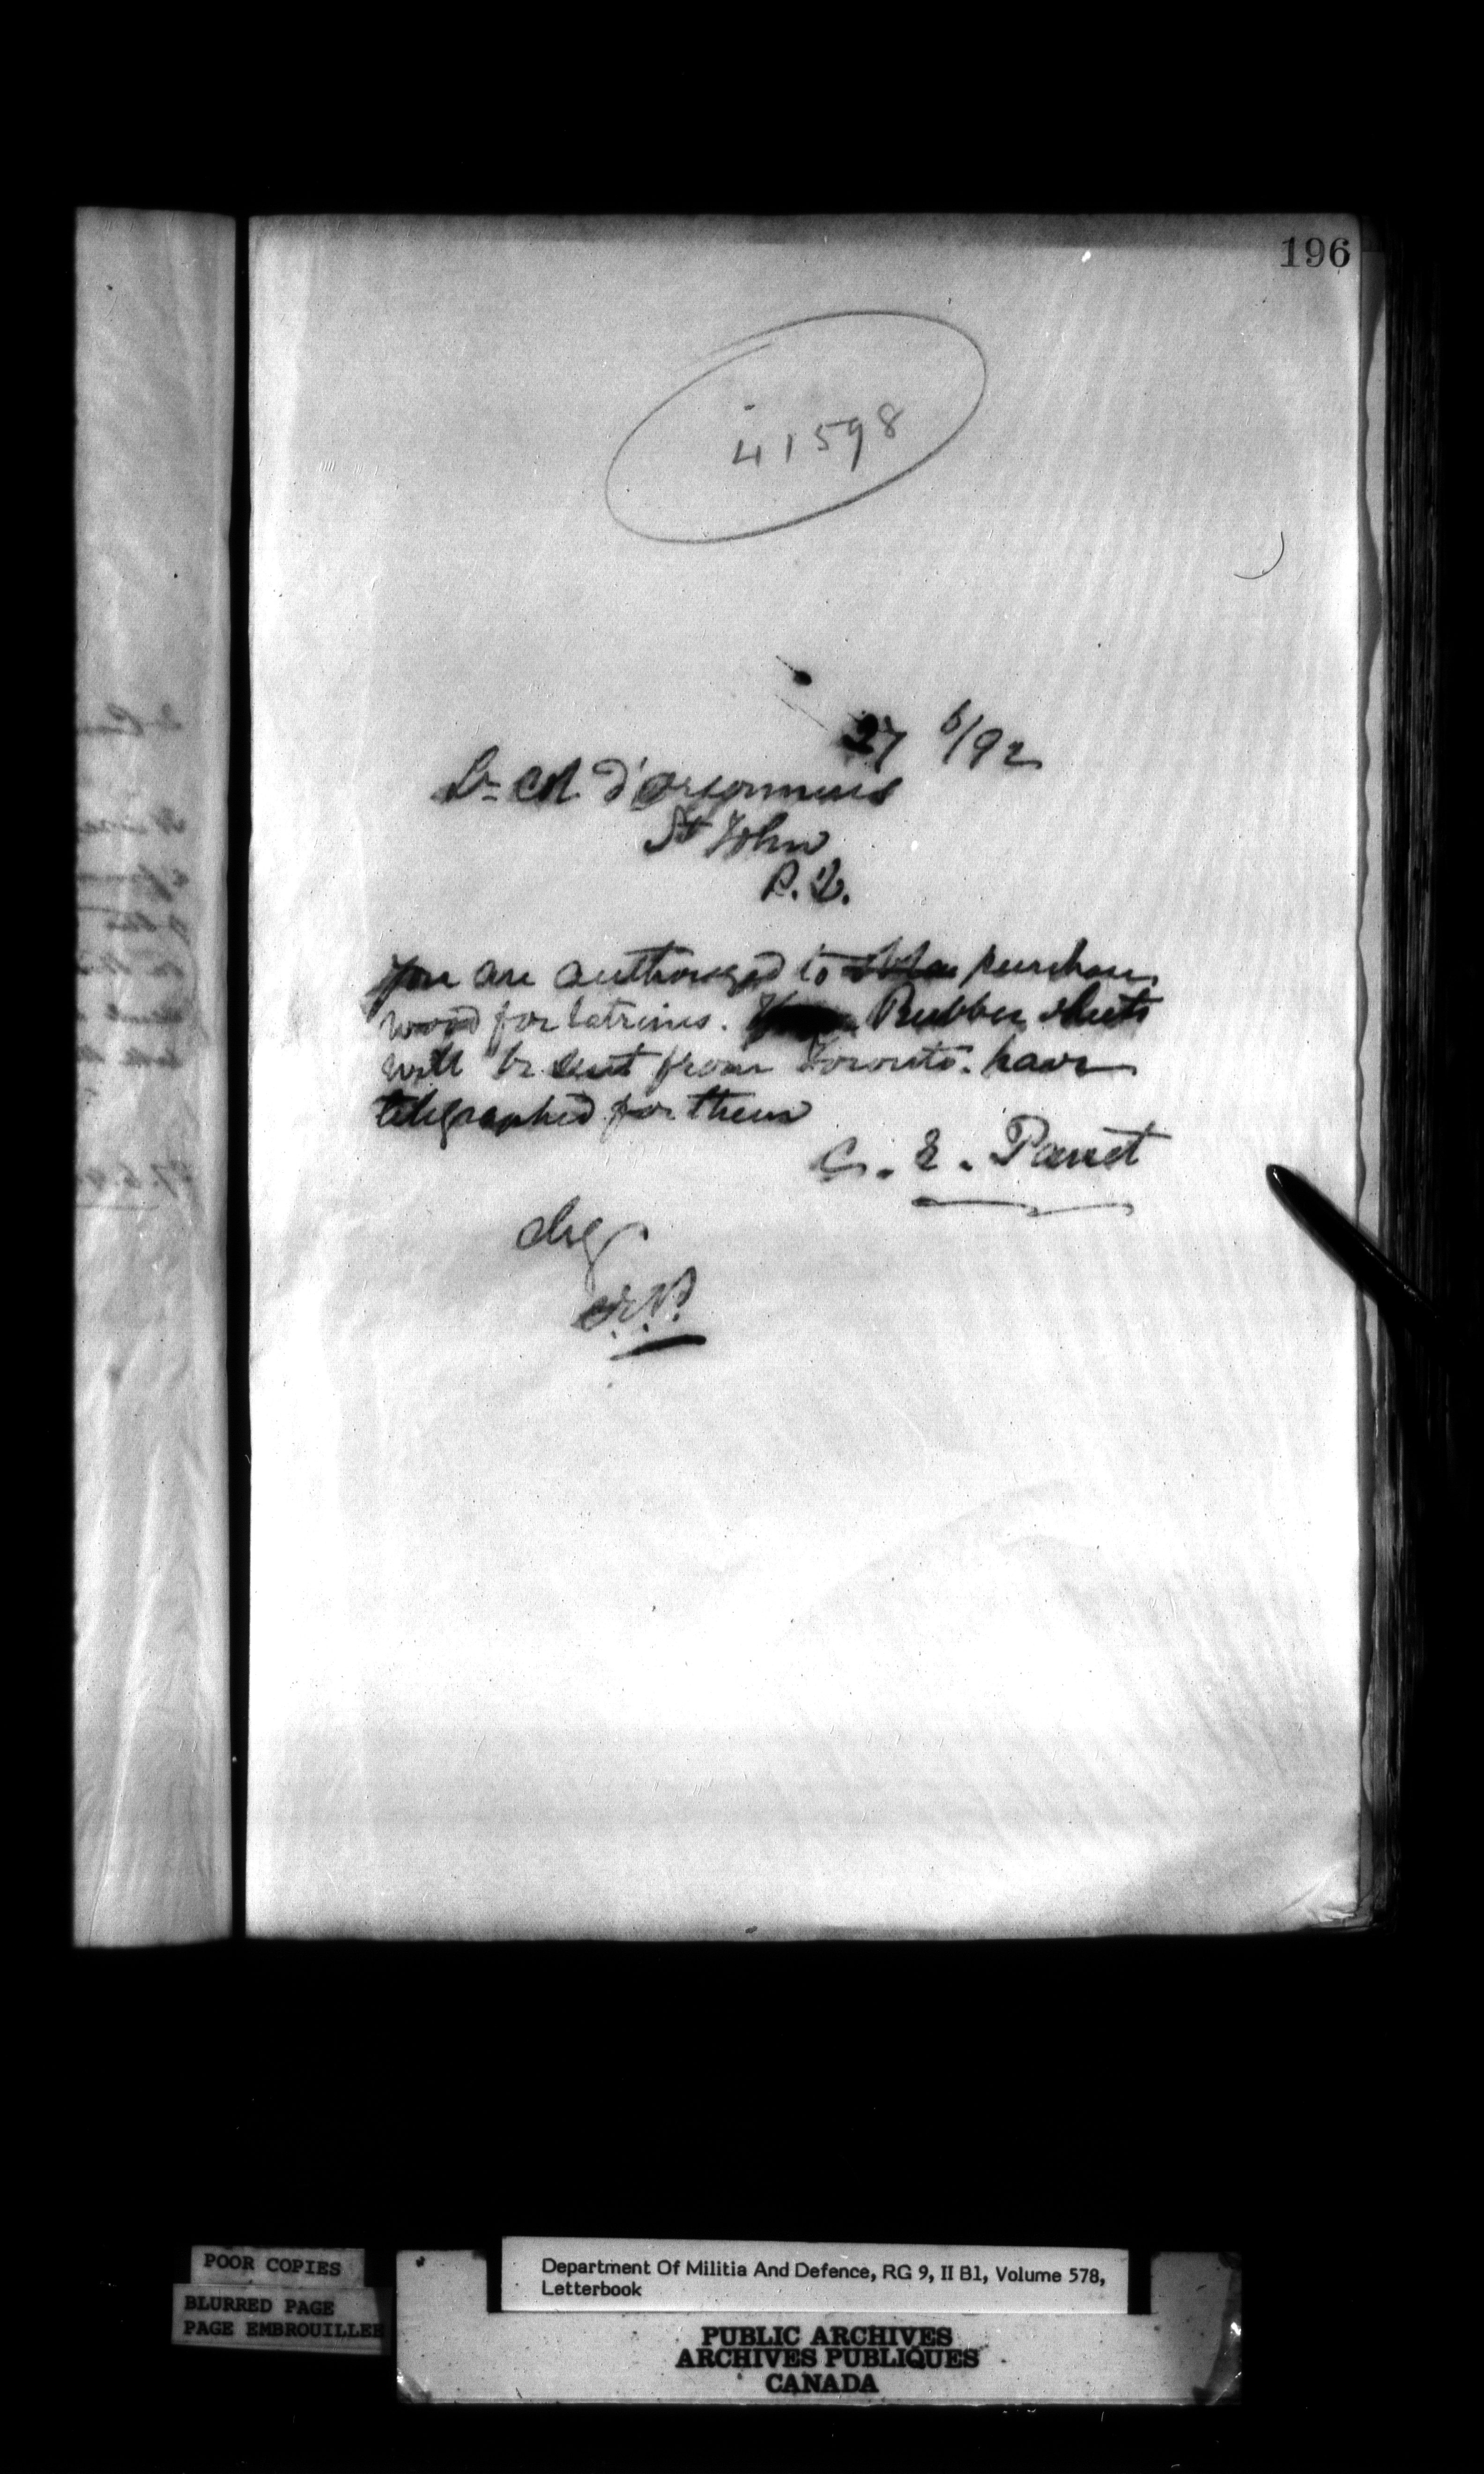 196
41598
27 6/92
Lt Col d'Orsonnens
St John
P.Q.
You are authorized to purchase
wood for latrines. Rubber sheets
will be sent from Toronto. have
telegraphed for them
C. E. Panet
chg
POOR COPIES
BLURRED PAGE
PAGE EMBROUILLEE
Department Of Militia And Defence, RG 9, II B1, Volume 578,
Letterbook
PUBLIC ARCHIVES
ARCHIVES PUBLIQUES
CANADA